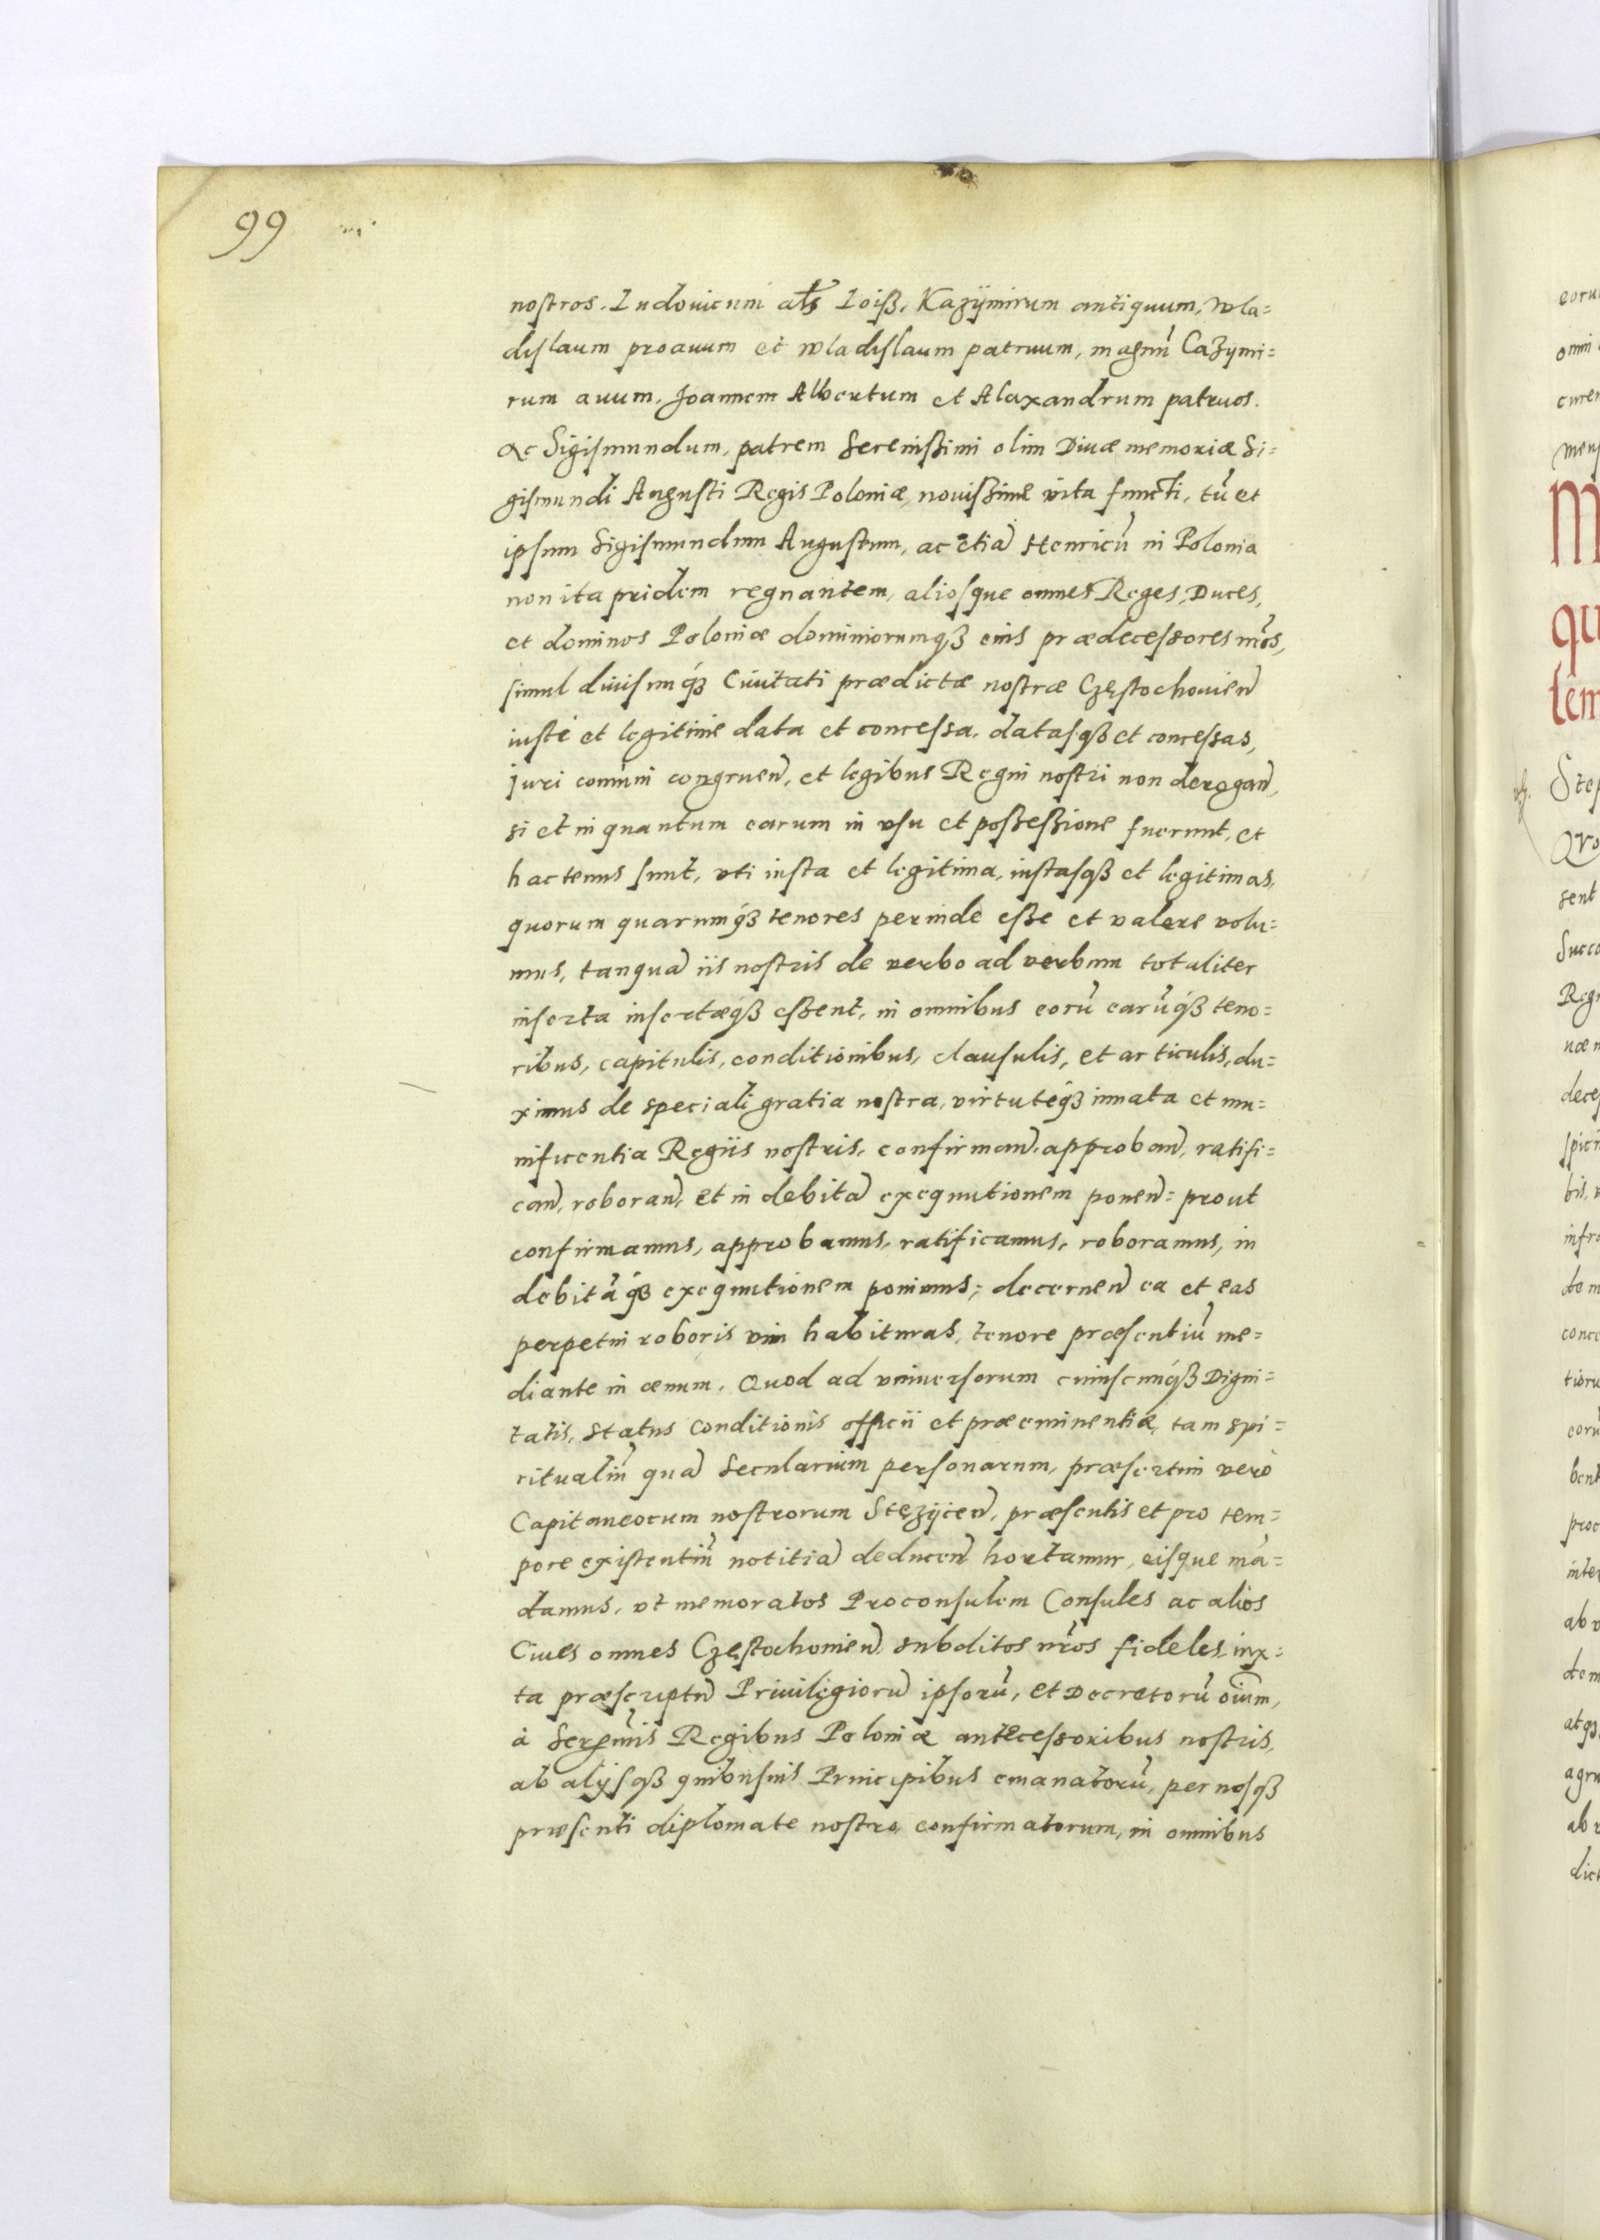 99
nostros. Ludouicum als Loiß, Kazÿmirum antiquum, Wla=
dislaum proauum et Wladislaum patruum, magnū Cazymi=
rum auum, Joannem Albertum et Alaxandrum patruos.
Ac Sigismundum, patrem Serenißimi olim Diuæ memoriæ Si=
gismundi Augusti Regis Poloniæ, nouißime vita functi, tū et
ipsum Sigismundum Augustum, ac etiā Henricū in Polonia
non ita pridem regnantem, aliosque omnes Reges, Duces,
et dominos Poloniæ dominiorumqȝ eius prædecessores nr̄os,
simul diuisimqȝ Ciuitati prædictæ nostræ Częstochouien̄
iustè et legitime data et concessa, datasqȝ et concessas,
iuri comuni congruen̄, et legibus Regni nostri non derogan̄,
si et in quantum earum in vsu et poßeßione fuerunt, et
hactenus sunt, vti iusta et legitima, iustasqȝ et legitimas,
quorum quarumqȝ tenores perinde eße et valere volu=
mus, tanquā iis nostris de verbo ad verbum totaliter
inserta insertæqȝ eßent, in omnibus eorū earūqȝ teno=
ribus, capitulis, conditionibus, clausulis, et articulis, du=
ximus de speciali gratia nostra, virtuteqȝ innata et mu=
nificentia Regiis nostris, confirman̄, approban̄, ratifi=
can̄, roboran̄, et in debitā exequutionem ponen̄= prout
confirmamus, approbamus, ratificamus, roboramus, in
debitāqȝ exequutionem ponimus; decernen̄ ea et eas
perpetui roboris vim habituras, tenore præsentiū me=
diante in æuum. Quod ad vniuersorum cuiuscunqȝ Digni=
tatis, status conditionis officii et præeminentiæ, tam spi=
ritualiū quā Secularium personarum, præsertim verò
Capitaneorum nostrorum Stęzÿcen̄, præsentis et pro tem=
pore existentiū notitiā deducen̄ hortamur, eisque mā=
damus, vt memoratos Proconsulem Consules ac alios
Ciues omnes Częstochouien̄ subditos nr̄os fideles iux=
ta præscriptū Priuilegiorū ipsorū, et Decretorū oīum,
à Serenmis Regibus Poloniæ antecessoribus nostris,
ab alijsqȝ quibusuis Principibus emanatorū, per nosqȝ
præsenti diplomate nostro confirmatorum, in omnibus